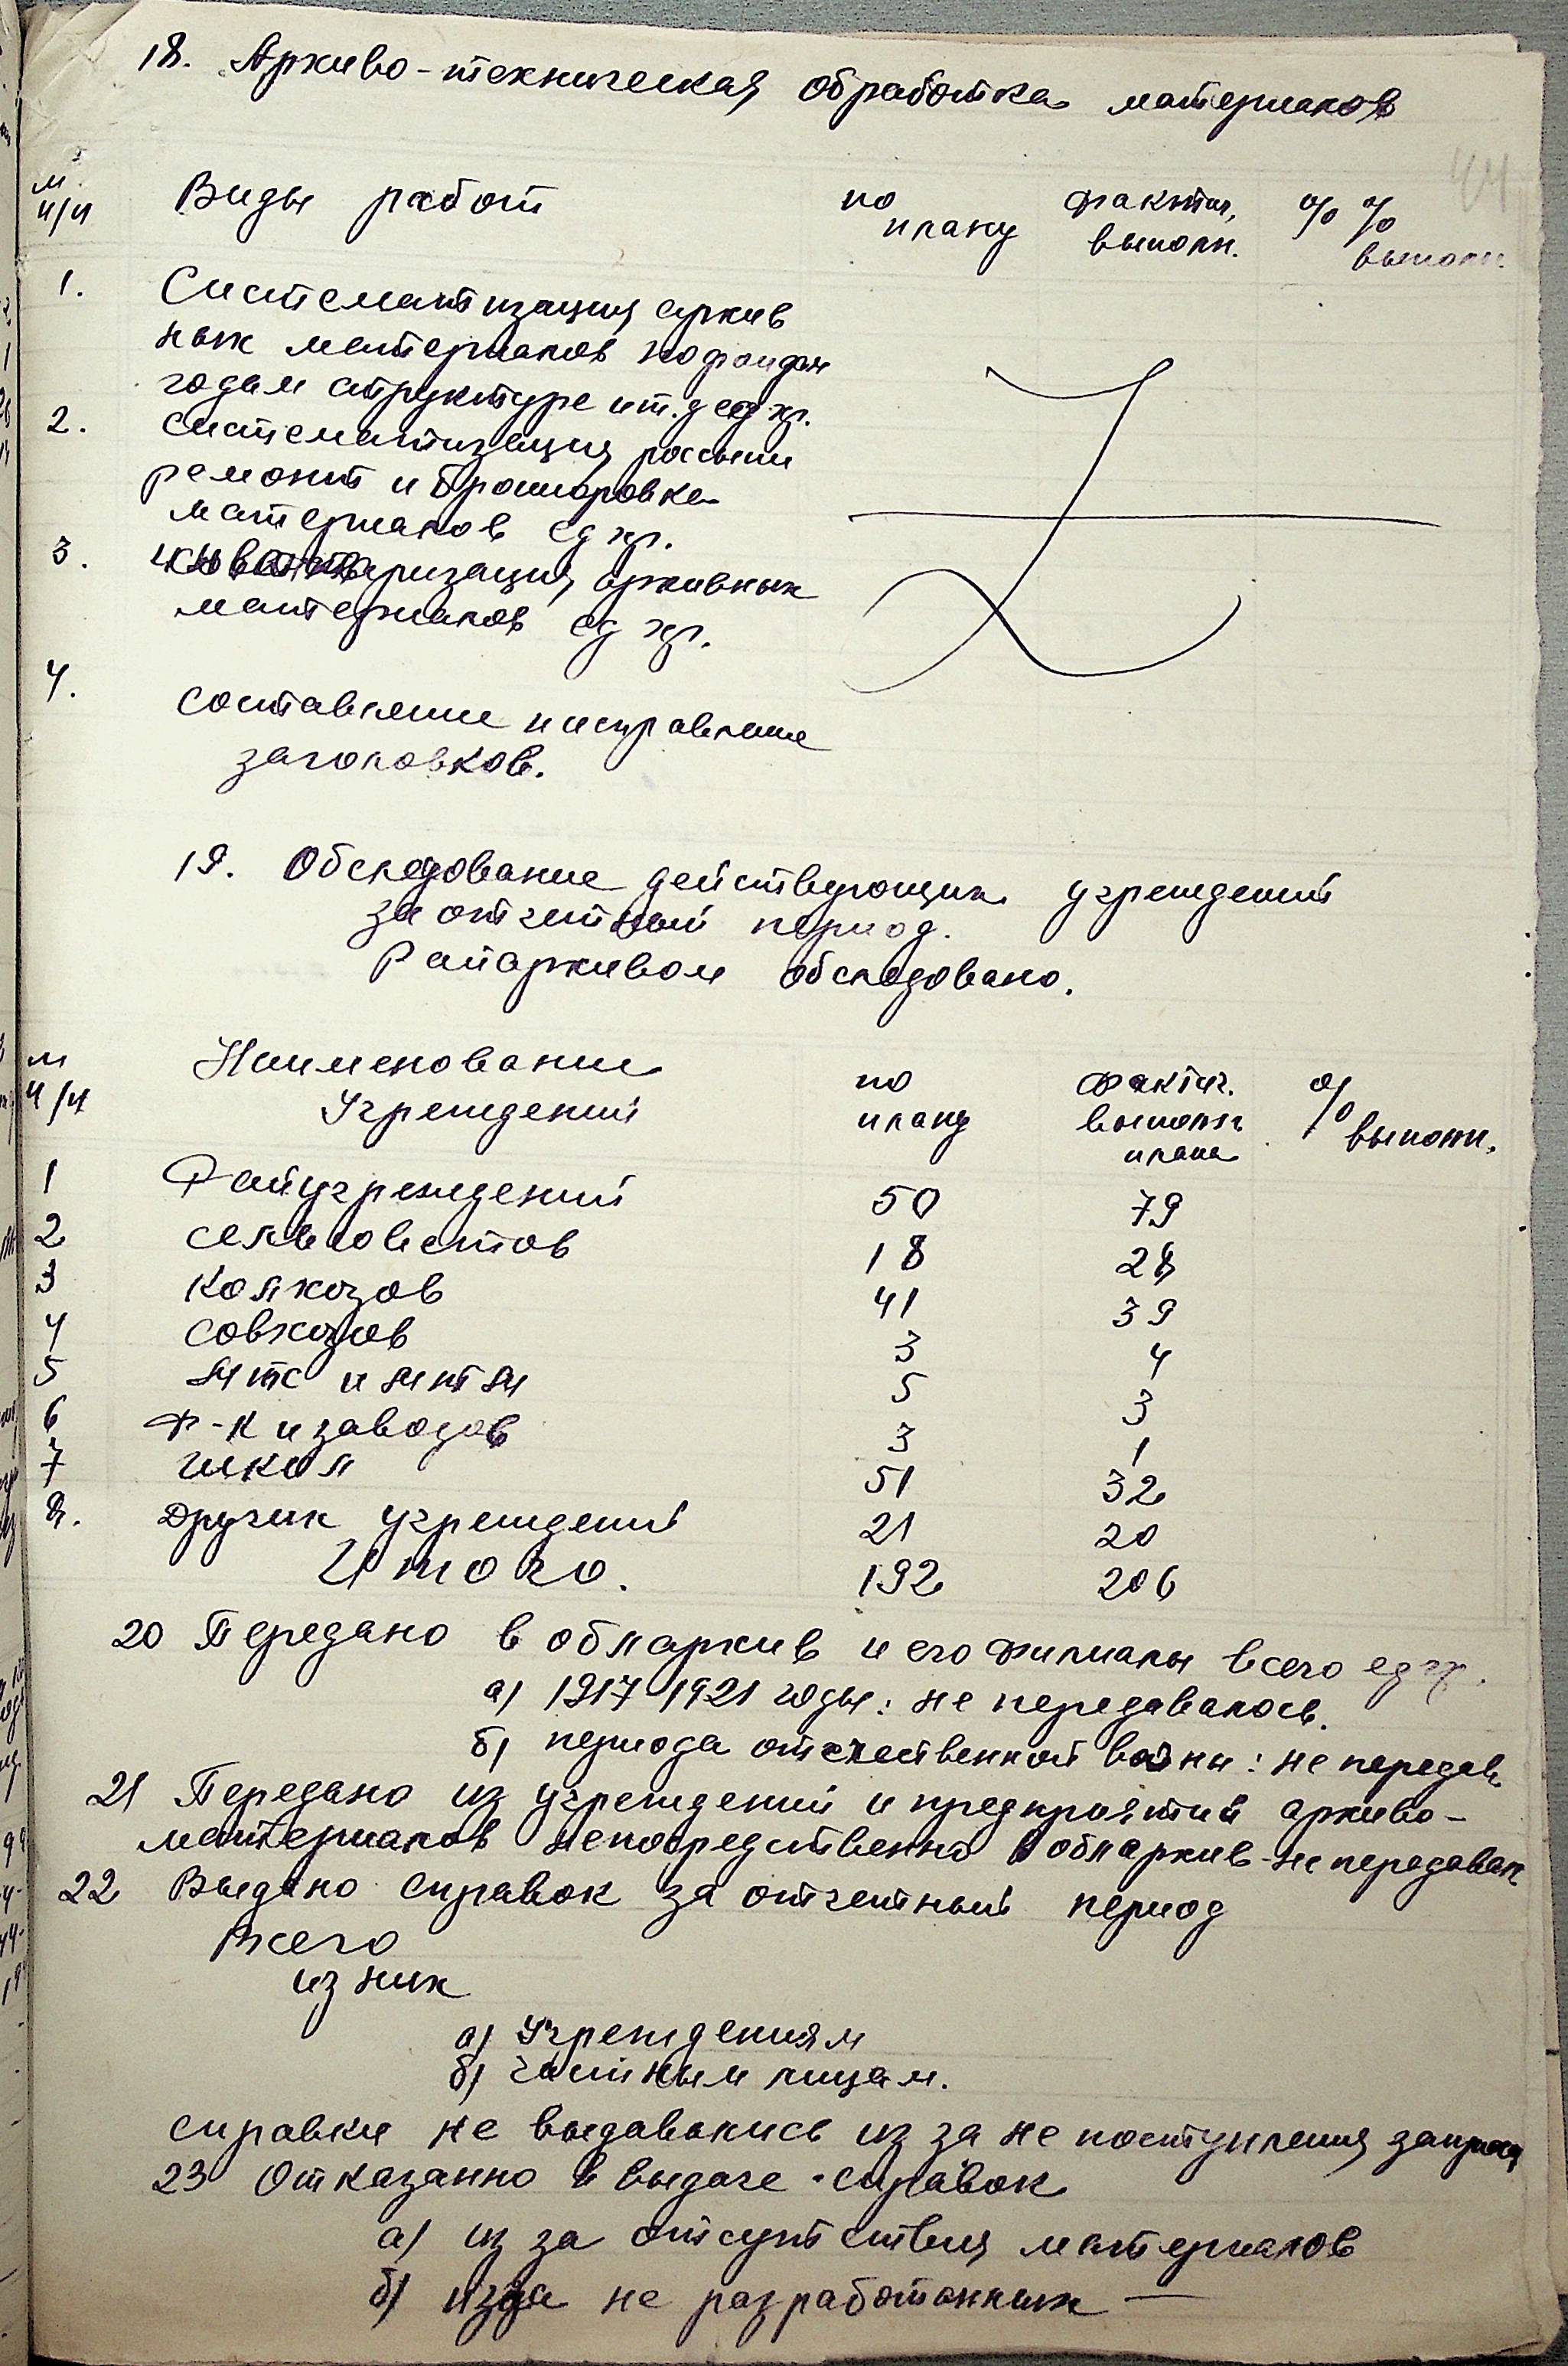 18. Архиво-техническая обработка материалов
№ п/п Виды работ по плану фактич. выполн. % % выполн.
1. Систематизация архив
ных материалов по фондам
годам структуре и т.д ед хр.
2. Систематизация россыпи
ремонт и брошюровка
материалов ед хр.
3. инвентаризация архивных
материалов ед хр.
4. составление и исправление
заголовков.
19. Обследование действующих учреждений
за отчетный период.
Райархивом обследовано.
№ п/п Наименование Учреждений по плану фактич. выполн плана % выполн.
1 Райучреждений 50 79
2 сельсоветов 18 28
3 колхозов 41 39
4 совхозов 3 4
5 мтс и мтм 5 3
6 ф-к и заводов 3 1
7 школ 51 32
8. других учреждений 21 20
Итого. 192 206
20 Передано в облархив и его филиалы всего ед хр.
а) 1917-1921 годы: не передавалось.
б) периода отечественной войны: не передав
21 Передано из учреждений и предприятий архиво-
материалов непосредственно в облархив - не передавал
22 Выдано справок за отчетный период
Всего
из них
а) Учреждениям
б) частным лицам.
справки не выдавались из за не поступления запроса
23 Отказанно в выдаче справок
а) из за отсутствия материалов
б) из за не разработанных —